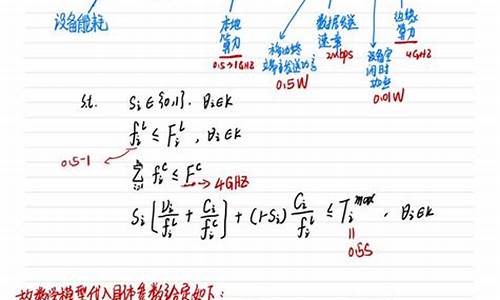 设备能耗
本地算力
0.5→1GHz
移动终端的发送功率
0.5W
数据发送速率
2mbps
设备空闲时功率
0.01W
边缘算力
4GHz
s.t. Sᵢ∈{0,1}, ∂ᵢ∈K
fᵢᴸ ≤ Fᵢᴸ, ∂ᵢ∈K
0.5-1
Σ fᵢᶜ ≤ Fᶜ → 4GHz
Sᵢ[Dᵢ/fᵢ + Cᵢ/fᵢᶜ] + (1-Sᵢ) Cᵢ/fᵢᴸ ≤ Tᵢᵐᵃˣ, ∂ᵢ∈K
||
0.5S
数学模型代入具体参数给定如下: